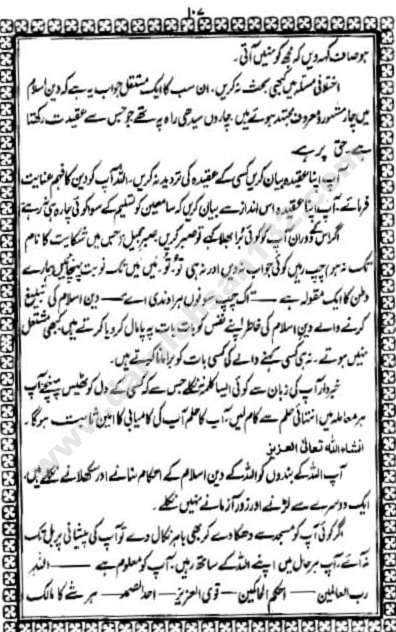 ۱۰۷
جو صاف کہہ دیں کہ مجھ کو نہیں آتی۔
اختلافی مسئلہ میں کبھی بحث نہ کریں۔ ان سب کا ایک مستقل جواب یہ ہے کہ دین اسلام
میں چار مشہور و معروف مجتہد ہوئے ہیں۔ چاروں سیدھی راہ پہ تھے جو جس سے عقیدت رکھتا
ہے حق پر ہے
آپ اپنا عقیدہ بیان کریں کسی کے عقیدہ کی تردید نہ کریں۔ اللہ آپ کو دین کا فہم عنایت
فرمائے۔ آپ اپنا عقیدہ اس انداز سے بیان کریں کہ سامعین کو تسلیم کے سوا کوئی چارہ ہی نہ رہے
اگر اس کے دوران آپ کو کوئی برا بھلا کہے تو صبر کریں۔ صبر جمیل جس میں شکایت کا نام
تک نہ ہو چپ رہیں کوئی جواب نہ دیں اور نہ ہی تو تو، میں میں تک نوبت پہنچائیں ہمارے
وطن کا ایک مقولہ ہے — اک چپ سو نوں ہراوندی اے — دین اسلام کی تبلیغ
کرنے والے دین اسلام کی خاطر اپنے نفس کو بات بات پہ پامال کر دیا کرتے ہیں کبھی مشتعل
نہیں ہوتے۔ نہ ہی کسی کہنے والے کی کسی بات کو برا مانا کرتے ہیں۔
خبردار آپ کی زبان سے کوئی ایسا کلمہ نہ نکلے جس سے کہ کسی کے دل کو ٹھیس پہنچے آپ
ہر معاملہ میں انتہائی حلم سے کام لیں۔ آپ کا حلم آپ کی کامیابی کا امین ثابت ہوگا۔
انشاء اللہ تعالیٰ العزیز
آپ اللہ کے بندوں کو اللہ کے دین اسلام کے احکام بتانے اور سکھلانے نکلے ہیں،
ایک دوسرے سے لڑنے اور زور آزمانے نہیں نکلے۔
اگر کوئی آپ کو مسجد سے دھکا دے کر بھی باہر نکال دے تو آپ کی پیشانی پر بل تک
نہ آئے۔ آپ ہر حال میں اپنے اللہ کے ساتھ رہیں۔ آپ کو معلوم ہے — اللہ
رب العالمین — احکم الحاکمین — قوی العزیز — احد الصمد — ہر شے کا مالک